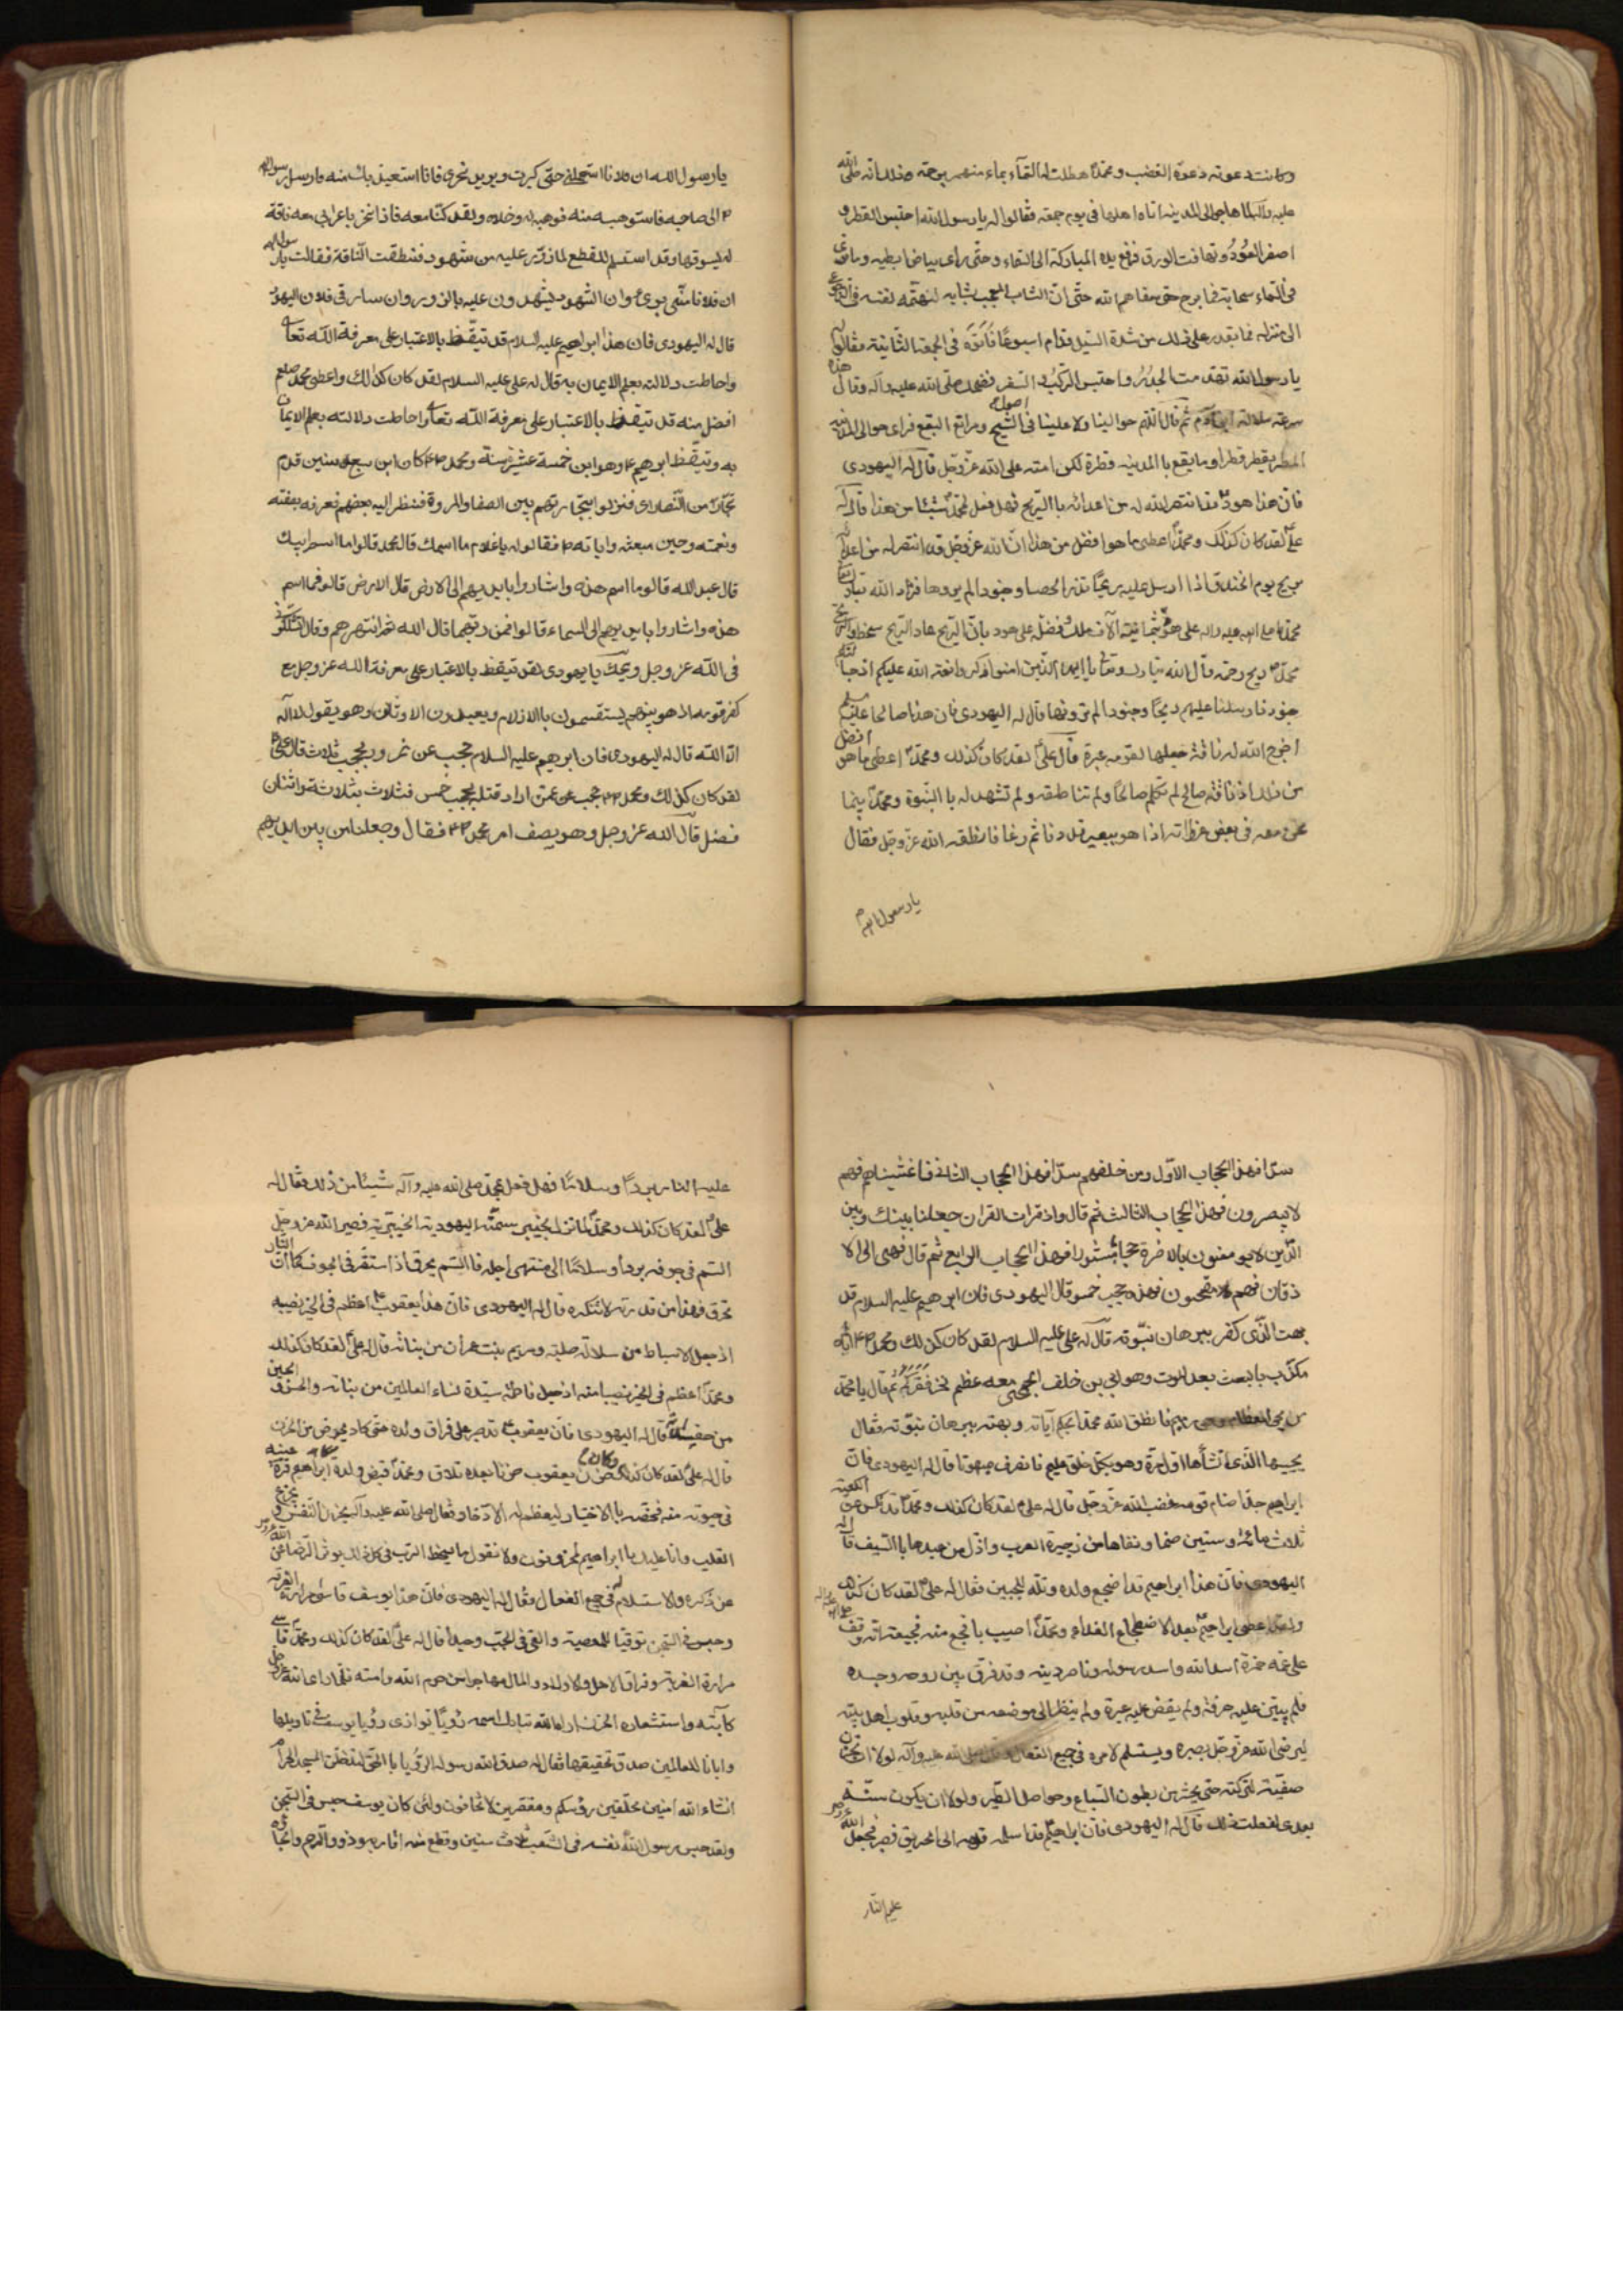 وكانت دعوته دعوة الغضب ومحمد هطلت له السماء بماء منهمر برحمة وذلك انه صلى الله
عليه وآله لما هاجر الى المدينة اتاه اهلها في يوم جمعة فقالوا له يا رسول الله احتبس القطر و
اصفر العود وتهافت الورق فرفع يده المباركة الى السماء وحتى راى بياض ابطيه وما ترى
في السماء سحابة فما برح حتى سقاهم الله حتى ان الشاب المعجب بشبابه لتهمه نفسه في الرجوع
الى منزله فما يقدر على ذلك من شدة السيل فدام اسبوعا فاتوه في الجمعة الثانية فقالوا
يا رسول الله تهدمت الجدر واحتبس الركب و السفر فضحك صلى الله عليه وآله وقال هذه
سرعة ملالة ابن آدم ثم قال اللهم حوالينا ولا علينا في اصول الشيح ومراتع البقع فراى حوالى المدينة
المطر يقطر قطرا وما يقع بالمدينة قطرة لكرامته على الله عز وجل قال له اليهودى
فان هذا هود قد انتصر الله له من اعدائه با الريح فهل فعل لمحمد شيئا من هذا قال له
على لقد كان كذلك ومحمدا اعطى ما هو افضل من هذا ان الله عز وجل قد انتصر له من اعدائه
بريح يوم الخندق اذا ارسل عليهم ريحا تذر الحصا وجنودا لم يروها فزاد الله تبارك
محمدا صلى الله عليه واله على هود بثمانية آلاف ملك وفضله على هود بان الريح عاد الريح سخط والريح
محمد ريح رحمة قال الله تبارك وتعالى يا ايها الذين امنوا اذكروا نعمة الله عليكم اذ جاءتكم
جنود فارسلنا عليهم ريحا وجنودا لم تروها قال له اليهودى فان هذا صالحا
اخرج الله له ناقة جعلها لقومه عبرة قال على لقد كان كذلك ومحمد اعطى ما هو افضل
من ذلك اذ ناقة صالح لم تكلم صالحا ولم تناطقه ولم تشهد له با النبوة ومحمد بينما
نحن معه في بعض غزواته اذا هو ببعير قد دنا ثم رغا فانطقه الله عز وجل فقال
يا رسول الله
يا رسول الله ان فلانا استعملني حتى كبرت ويريد نحرى فانا استعيذ بك منه فارسل رسول الله
الى صاحبه فاستوهبه منه فوهبه له وخلاه ولقد كنا معه فاذا نحن باعرابى معه ناقة
له يسوقها وقد استسلم للقطع لما زور عليه من شهود فنطقت الناقة فقالت يا رسول الله
ان فلانا منى برئ وان الشهود يشهدون عليه بالزور وان سارقى فلان اليهودى
قال له اليهودى فان هذا ابراهيم عليه السلام قد تيقظ بالاعتبار على معرفة الله تعالى
واحاطت دلالته بعلم الايمان به قال له على عليه السلام لقد كان كذلك واعطى محمد صلعم
افضل منه قد تيقظ بالاعتبار على معرفة الله تعالى واحاطت دلالته بعلم الايمان
به وتيقظ ابرهيم وهو ابن خمسة عشر سنة ومحمد كان ابن سبع سنين قدم
تجار من النصارى فنزلوا بتجارتهم بين الصفا والمروة فنظر اليه بعضهم فعرفه بصفته
ونعته وحين مبعثه واياته فقالوا له يا غلام ما اسمك قال محمد قالوا ما اسم ابيك
قال عبد الله قالوا ما اسم هذه واشاروا بايديهم الى الارض قال الارض قالوا فما اسم
هذه واشاروا بايديهم الى السماء قالوا فمن ربهما قال الله ثم انتهرهم وقال اتشككونى
في الله عز وجل ويحك يا يهودى لقد تيقظ بالاعتبار على معرفة الله عز وجل مع
كفر قومه اذ هو بينهم يستقسمون بالازلام ويعبدون الاوثان وهو يقول لا اله
الا الله قال له اليهودى فان ابرهيم عليه السلام حجب عن نمرود بحجب ثلاث قال على
لقد كان كذلك ومحمد حجب عن من اراد قتله بحجب خمس فثلاث بثلاثة واثنان
فضل قال الله عز وجل وهو يصف امر محمد فقال وجعلنا من بين ايديهم
سدا فهذا الحجاب الاول ومن خلفهم سدا فهذا الحجاب الثانى فاغشيناهم فهم
لا يبصرون فهذا الحجاب الثالث ثم قال واذ قرات القران جعلنا بينك وبين
الذين لا يومنون بالاخرة حجابا مستورا فهذا الحجاب الرابع ثم قال فهى الى الا
ذقان فهم مقمحون فهذه حجب خمس قال اليهودى فان ابرهيم عليه السلام قد
بهت الذى كفر ببرهان نبوته قال له على عليه السلام لقد كان كذلك ومحمد اتاه
مكذب بالبعث بعد الموت وهو ابى بن خلف الجمحى معه عظم نخر ففركه ثم قال يا محمد
من يحي العظام وهى رميم فانطق الله محمدا بمحكم آياته وبهته ببرهان نبوته فقال
يحييها الذى انشأها اول مرة وهو بكل خلق عليم فانصرف مبهوتا قال له اليهودى فان
ابراهيم جذ اصنام قومه غضبا لله عز وجل قال له على لقد كان كذلك ومحمد قد نكس عن الكعبة
ثلاث مائة وستين صنما ونفاها من جزيرة العرب واذل من عبدها با السيف قال له
اليهودى فان هذا ابراهيم قد اضجع ولده وتله للجبين فقال له على لقد كان كذلك
ولقد اعطى ابراهيم بعد الاضطجاع الفداء ومحمد اصيب بافجع منه فجيعة انه وقف
على عمه حمزة اسد الله واسد رسوله وناصر دينه وقد فرق بين روحه وجسده
فلم يبين عليه حرقة ولم يفض عليه عبرة ولم ينظر الى موضعه من قلبه وقلوب اهل بيته
ليرضى الله عز وجل بصبره ويستسلم لامره في جميع الفعال وقال صلى الله عليه وآله لولا ان تحزن
صفية لتركته حتى يحشر من بطون السباع وحواصل الطير ولولا ان يكون سنة
بعدى لفعلت ذلك قال له اليهودى فان ابراهيم قد اسلمه قومه الى الحريق فصبر فجعل الله عز وجل
عليه النار
عليه النار بردا وسلاما فهل فعل بمحمد صلى الله عليه وآله شيئا من ذلك فقال له
على لقد كان كذلك ومحمد لما نزل بخيبر سمته اليهودية الخيبرية فصير الله عز وجل
السم في جوفه بردا وسلاما الى منتهى اجله فا السم يحرق اذا استقر في الجوف كما ان النار
تحرق فهذا من قدرته لا تنكره قال له اليهودى فان هذا يعقوب اعظم في الخير نصيبه
اذ جعل الاسباط من سلالة صلبه ومريم بنت عمران من بناته قال له على لقد كان كذلك
ومحمد اعظم في الخير نصيبا منه اذ جعل فاطمة سيدة نساء العالمين من بناته والحسن و الحسين
من حفدته قال له اليهودى فان يعقوب قد صبر على فراق ولده حتى كاد يحرض من الحزن
قال له على لقد كان كذلك وكان حزن يعقوب حزنا بعده تلاق ومحمد قبض ولده ابراهيم قرة عينه
في حيوته منه فخصه با الاختيار ليعظم له الادخار فقال صلى الله عليه وآله يحزن النفس و يجزع
القلب وانا عليك يا ابراهيم لمحزونون ولا نقول ما يسخط الرب في كل ذلك يوثر الرضا عن الله
عز ذكره والاستسلام له في جميع الفعال وقال له اليهودى فان هذا يوسف قاسى مرارة الفرقة
وحبس في السجن توقيا للمعصية والقى في الجب وحيدا قال له على لقد كان كذلك ومحمد قاسى
مرارة الغربة وفراق الاهل والاولاد والمال مهاجرا من حرم الله وامنه فلما راى الله
كآبته واستشعاره الحزن اراه الله تبارك اسمه رؤيا توازى رؤيا يوسف في تاويلها
وابانا للعالمين صدق تحقيقها فقال له صدق الله رسوله الرؤيا با الحق لتدخلن المسجد الحرام
انشاء الله امنين محلقين رؤسكم ومقصرين لا تخافون ولئن كان يوسف حبس في السجن
ولقد حبس رسول الله نفسه في الشعب ثلاث سنين وقطع منه اقاربه وذوو الرحم